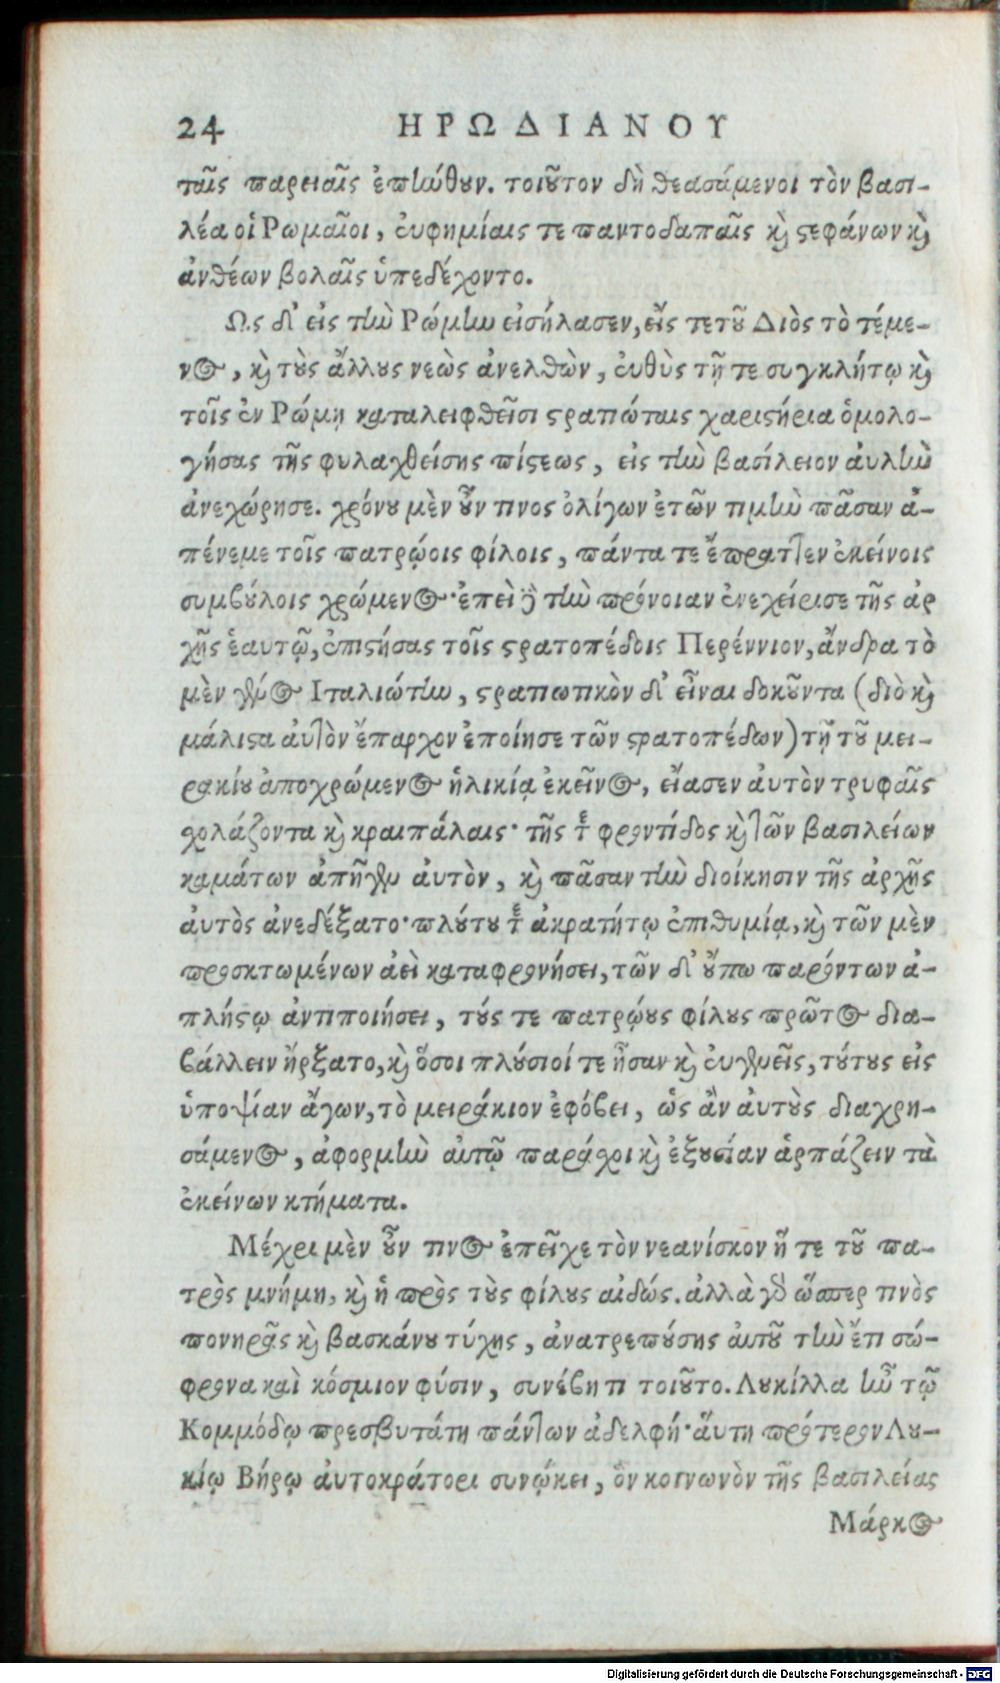 24 ΗΡΩΔΙΑΝΟΥ
ταῖς παρειαῖς ἐπήνθουν. τοιοῦτον δὴ θεασάμενοι τὸν βασι-
λέα οἱ Ρωμαῖοι, εὐφημίαις τε παντοδαπαῖς καὶ στεφάνων καὶ
ἀνθέων βολαῖς ὑπεδέχοντο.
Ως δ' εἰς τὴν Ρώμην εἰσήλασεν, εἴς τε τοῦ Διὸς τὸ τέμε-
νος, καὶ τοὺς ἄλλους νεὼς ἀνελθὼν, εὐθὺς τῇ τε συγκλήτῳ καὶ
τοῖς ἐν Ρώμῃ καταλειφθεῖσι στρατιώταις χαριστήρια ὁμολο-
γήσας τῆς φυλαχθείσης πίστεως, εἰς τὴν βασίλειον αὐλὴν
ἀνεχώρησε. χρόνου μὲν οὖν τινος ὀλίγων ἐτῶν τιμὴν πᾶσαν ἀ-
πένεμε τοῖς πατρῴοις φίλοις, πάντα τε ἔπραττεν ἐκείνοις
συμβούλοις χρώμενος· ἐπεὶ δὲ τὴν πρόνοιαν ἐνεχείρισε τῆς ἀρ
χῆς ἑαυτῷ, ἐπιστήσας τοῖς στρατοπέδοις Περέννιον, ἄνδρα τὸ
μὲν γένος Ιταλιώτην, στρατιωτικὸν δ' εἶναι δοκοῦντα (διὸ καὶ
μάλιστα αὐτὸν ἔπαρχον ἐποίησε τῶν στρατοπέδων) τῇ τοῦ μει-
ρακίου ἀποχρώμενος ἡλικίᾳ ἐκεῖνος, εἴασεν αὐτὸν τρυφαῖς
σχολάζοντα καὶ κραιπάλαις· τῆς δὲ φροντίδος καὶ τῶν βασιλείων
καμάτων ἀπῆγεν αὐτὸν, καὶ πᾶσαν τὴν διοίκησιν τῆς ἀρχῆς
αὐτὸς ἀνεδέξατο· πλούτου δὲ ἀκρατήτῳ ἐπιθυμίᾳ, καὶ τῶν μὲν
προσκτωμένων ἀεὶ καταφρονήσει, τῶν δ' οὔπω παρόντων ἀ-
πλήστῳ ἀντιποιήσει, τούς τε πατρῴους φίλους πρῶτος δια-
βάλλειν ἤρξατο, καὶ ὅσοι πλούσιοί τε ἦσαν καὶ εὐγενεῖς, τούτους εἰς
ὑποψίαν ἄγων, τὸ μειράκιον ἐφόβει, ὡς ἂν αὐτοὺς διαχρη-
σάμενος, ἀφορμὴν αὐτῷ παράσχοι καὶ ἐξουσίαν ἁρπάζειν τὰ
ἐκείνων κτήματα.
Μέχρι μὲν οὖν τινος ἐπεῖχε τὸν νεανίσκον ἥ τε τοῦ πα-
τρὸς μνήμη, καὶ ἡ πρὸς τοὺς φίλους αἰδώς. ἀλλὰ γὰρ ὥσπερ τινὸς
πονηρᾶς καὶ βασκάνου τύχης, ἀνατρεπούσης αὐτοῦ τὴν ἔτι σώ-
φρονα καὶ κόσμιον φύσιν, συνέβη τι τοιοῦτο. Λουκίλλα ἦν τῷ
Κομμόδῳ πρεσβυτάτη πάντων ἀδελφή· αὕτη πρότερον Λου-
κίῳ Βήρῳ αὐτοκράτορι συνῴκει, ὃν κοινωνὸν τῆς βασιλείας
Μάρκος
Digitalisierung gefördert durch die Deutsche Forschungsgemeinschaft - DFG